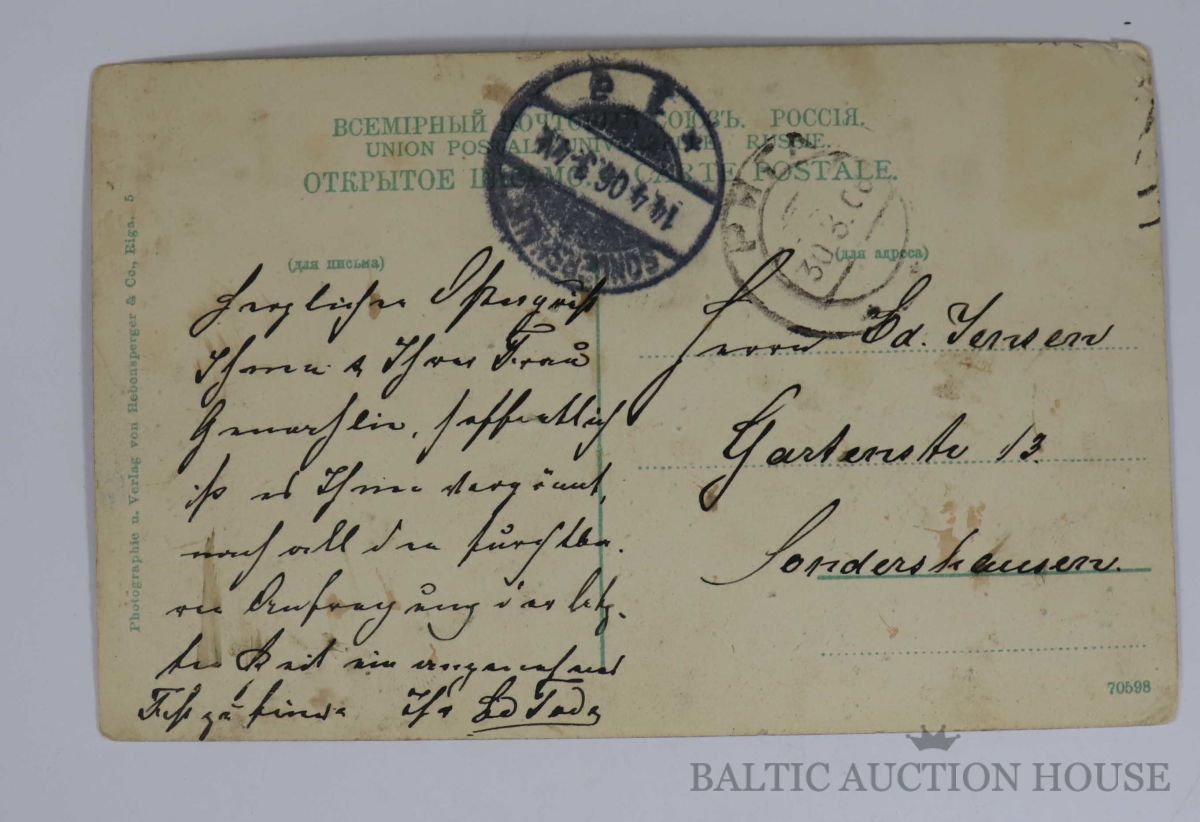 ВСЕМІРНЫЙ ПОЧТОВЫЙ СОЮЗЪ. РОССІЯ.
UNION POSTALE UNIVERSELLE RUSSIE.
ОТКРЫТОЕ ПИСЬМО. CARTE POSTALE.
SONDERSHAUSEN
14.4.06.3-4N.
РИГА
30.3.06
(для письма)
(для адреса)
Herzlichen Ostergruß
Ihnen & Ihrer Frau
Gemahlin, hoffentlich
ist es Ihnen vergönnt,
nach all den furchtba-
ren Aufregung der letz-
ten Zeit ein angenehmes
Fest zu
Ihr Ed
Herrn Ed. Jensen
Gartenstr 13.
Sondershausen.
Photographie u. Verlag von Rebensperger & Co., Riga. 5
70598
BALTIC AUCTION HOUSE